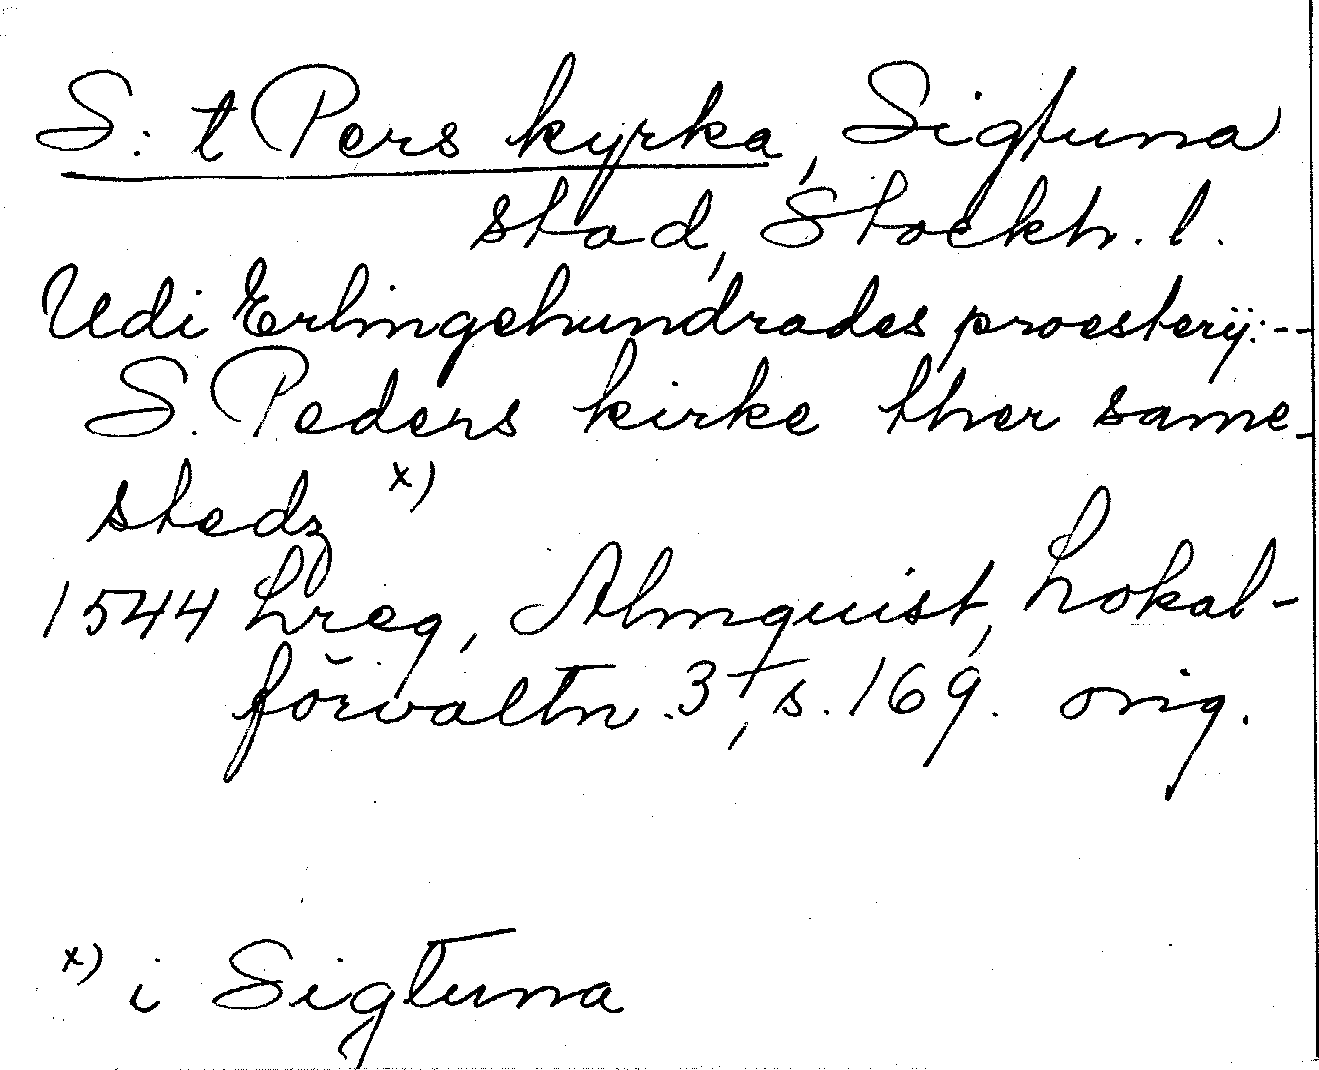 S:t Pers kyrka, Sigtuna
stad, Stockh. l.
Udi Erlingehundrades proesterij: --
S. Peders kirke ther same-
stedz x)
1544 Lreg, Almquist, Lokal-
förvaltn. 3, s. 169. orig.
x) i Sigtuna